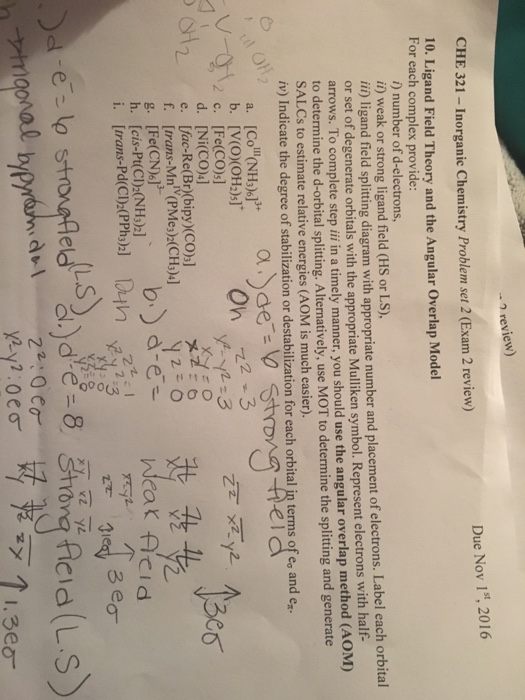 2 review)
Due Nov 1st, 2016
CHE 321 – Inorganic Chemistry Problem set 2 (Exam 2 review)
10. Ligand Field Theory and the Angular Overlap Model
For each complex provide:
i) number of d-electrons,
ii) weak or strong ligand field (HS or LS),
iii) ligand field splitting diagram with appropriate number and placement of electrons. Label each orbital
or set of degenerate orbitals with the appropriate Mulliken symbol. Represent electrons with half-
arrows. To complete step iii in a timely manner, you should use the angular overlap method (AOM)
to determine the d-orbital splitting. Alternatively, use MOT to determine the splitting and generate
SALCs to estimate relative energies (AOM is much easier).
iv) Indicate the degree of stabilization or destabilization for each orbital in terms of eσ and eπ.
a. [CoIII(NH3)6]3+
b. [V(O)(OH2)5]+
c. [Fe(CO)5]
d. [Ni(CO)4]
e. [fac-Re(Br)(bipy)(CO)3]
f. [trans-MnIV(PMe3)2(CH3)4]
g. [Fe(CN)6]
h. [cis-Pt(Cl)2(NH3)2]
i. [trans-Pd(Cl)2(PPh3)2]
a.) d e- = 6 strong field
Oh
z2 = 3
x2-y2 = 3
xy = 0
xz = 0
yz = 0
z2 x2y2 ↑3eσ
b.) d-e- =
weak field
z2 = 1
x2-y2 = 3
3eσ
) d-e- = 6 strong field (L.S)
trigonal bypyramidal
z2:
x2-y2:
d.) d-e- = 8 strong field (L.S)
xy xz yz
↑1.3eσ
OH2